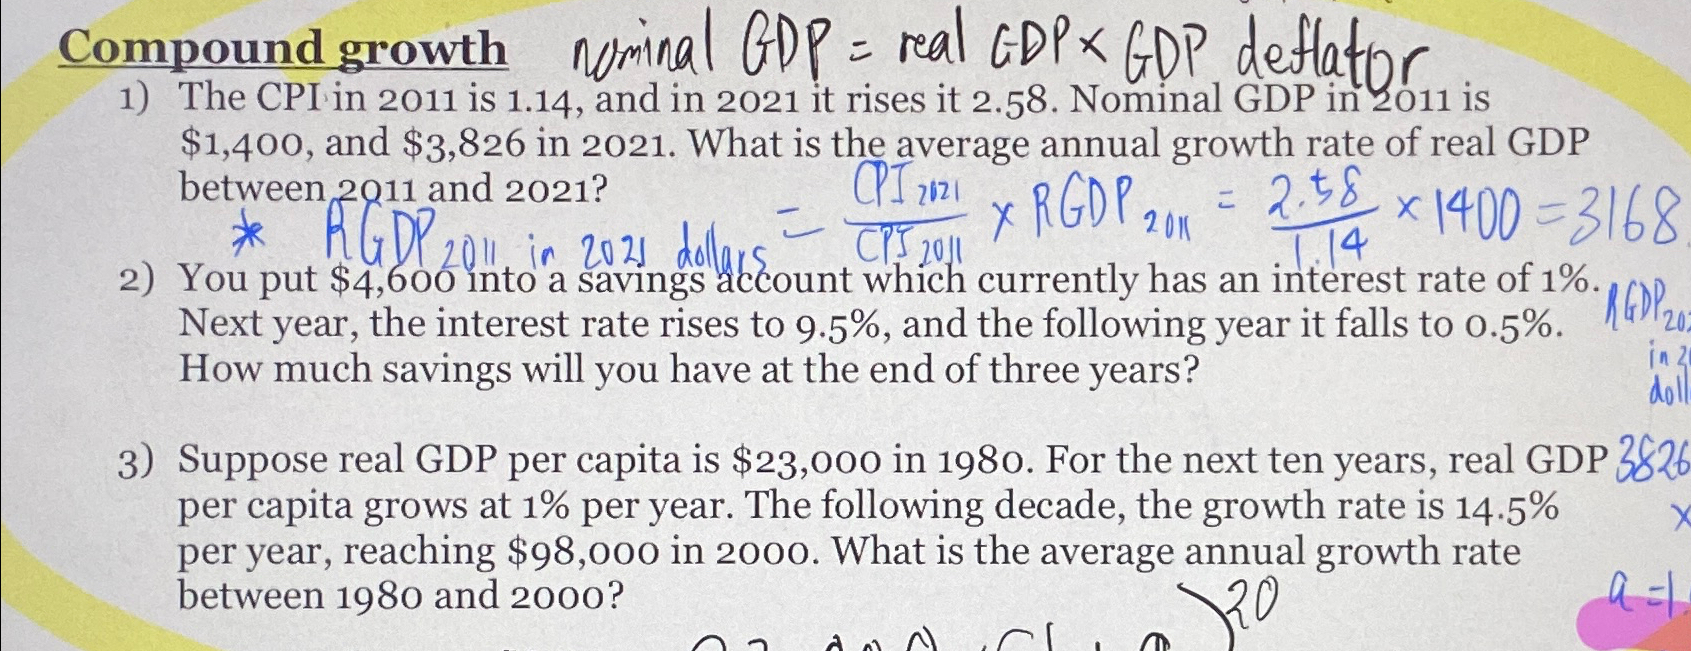 Compound growth nominal GDP = real GDP × GDP deflator
1) The CPI in 2011 is 1.14, and in 2021 it rises it 2.58. Nominal GDP in 2011 is
$1,400, and $3,826 in 2021. What is the average annual growth rate of real GDP
between 2011 and 2021?
* RGDP 2011 in 2021 dollars = CPI 2021 / CPI 2011 × RGDP 2011 = 2.58 / 1.14 × 1400 = 3168
2) You put $4,600 into a savings account which currently has an interest rate of 1%.
Next year, the interest rate rises to 9.5%, and the following year it falls to 0.5%.
How much savings will you have at the end of three years?
RGDP 20
in 2
doll
3) Suppose real GDP per capita is $23,000 in 1980. For the next ten years, real GDP
per capita grows at 1% per year. The following decade, the growth rate is 14.5%
per year, reaching $98,000 in 2000. What is the average annual growth rate
between 1980 and 2000?
3826
×
a = 1.
20